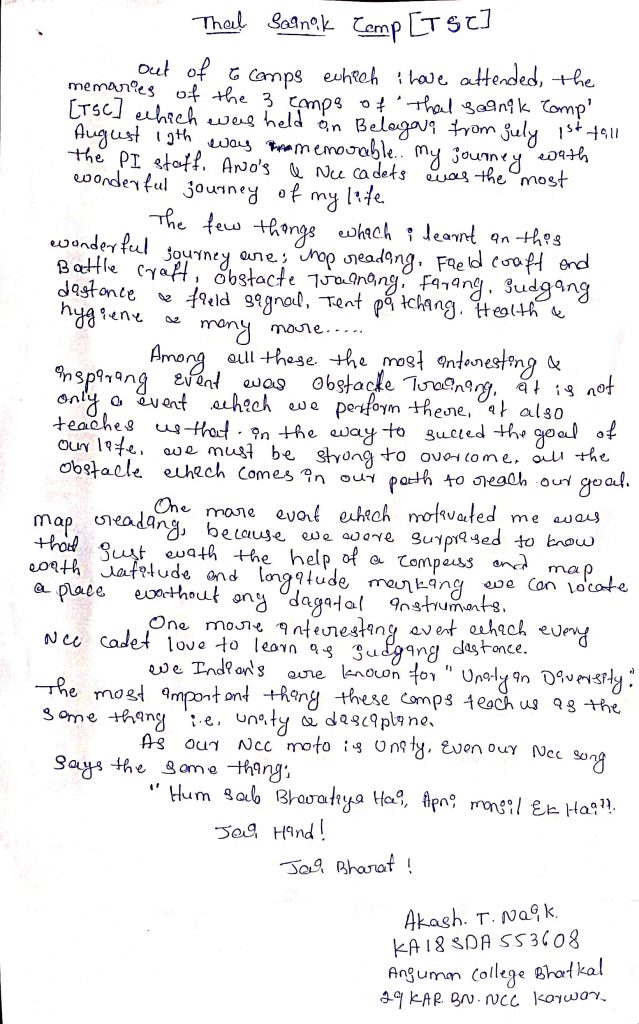 Thal Sainik Camp [TSC]
Out of 6 camps which i have attended, the
memories of the 3 camps of 'Thal Sainik Camp'
[TSC] which was held in Belagavi from july 1st till
August 19th was memorable.. my journey with
the PI staff, ANO's & Ncc cadets was the most
wonderful journey of my life
The few things which i learnt in this
wonderful journey are; map reading, Field craft and
Battle craft, obstacle Training, Firing, Judging
distance & field signal, Tent pitching. Health &
hygiene & many more.....
Among all these the most interesting &
inspiring event was Obstacle Training, it is not
only a event which we perform there, it also
teaches us that. in the way to succed the goal of
our life, we must be strong to overcome, all the
obstacle which comes in our path to reach our goal.
One more event which motivated me was
map reading, because we were surprised to know
that just with the help of a compass and map
with latitude and longitude marking we can locate
a place without any digital instruments.
One more interesting event which every
Ncc cadet love to learn is judging distance.
We Indian's are known for "Unity in Diversity".
The most important thing these camps teach us is the
same thing i.e, unity & discipline.
As our Ncc moto is Unity. Even our Ncc song
says the same thing;
"Hum sab Bharatiya Hai, Apni manjil Ek Hai".
Jai Hind!
Jai Bharat!
Akash. T. Naik.
KA18SDA553608
Anjuman College Bhatkal
29 KAR. BN. NCC Karwar